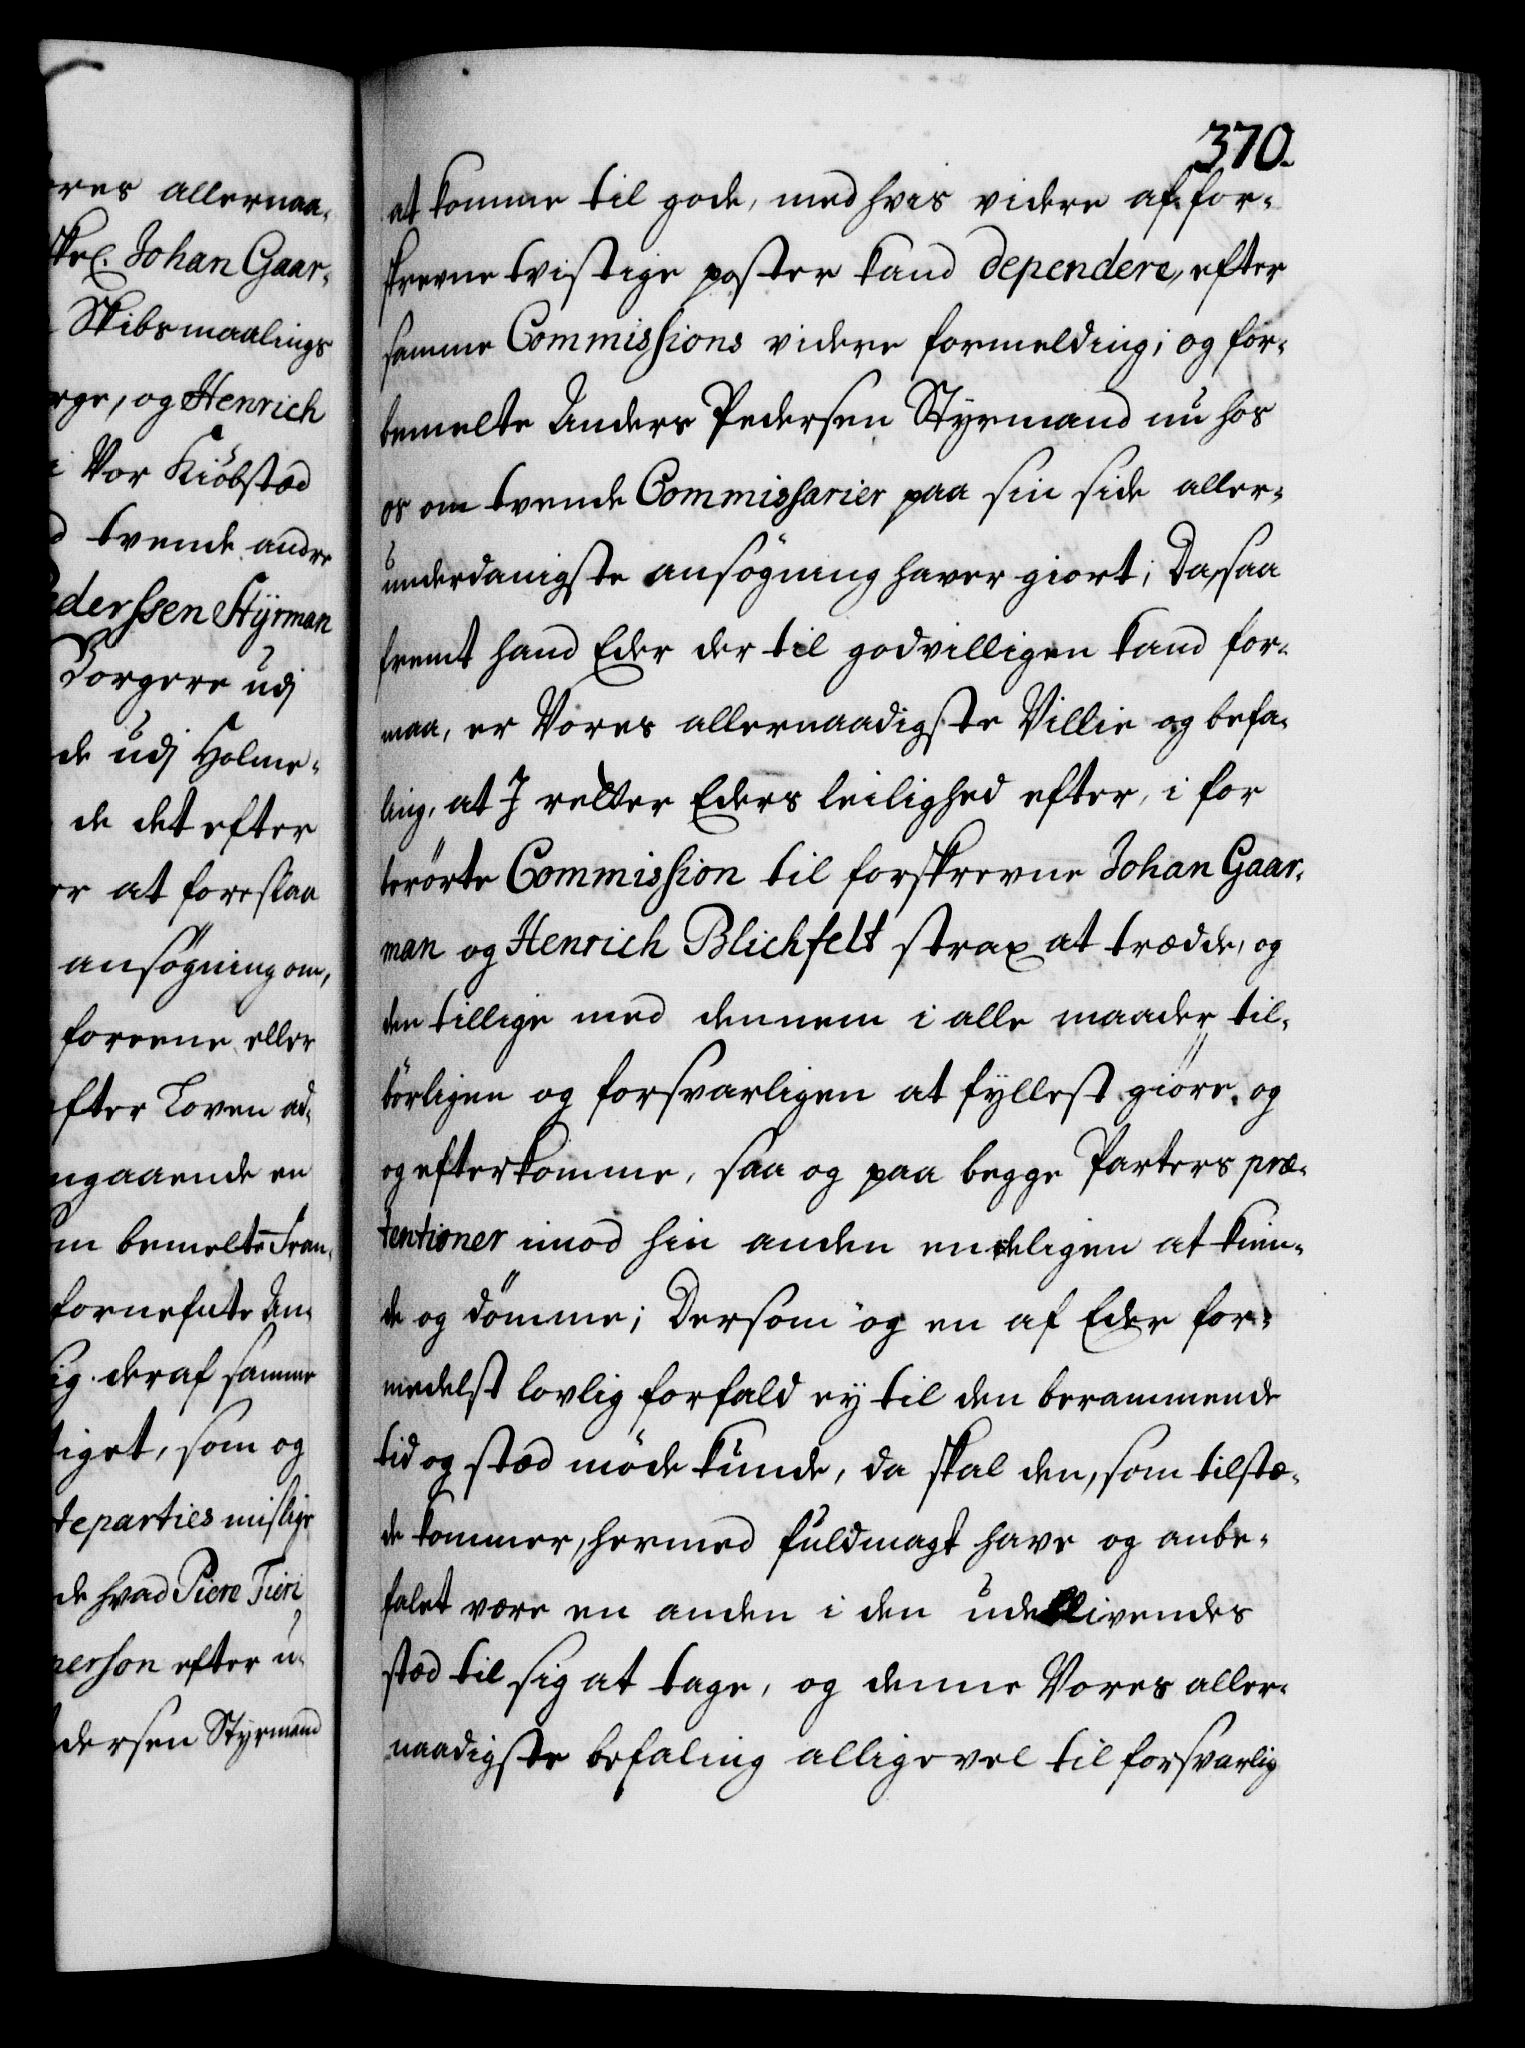 ores allernaa-
Skrl. Johan Gaar-
Skibsmaalings
erge, og Henrich
i Vor Kiöbstæd
d tvende andre
ederssen Styrman
Borgere udj
de udj Holme-
de det efter
er at foreslaa
ansøgning om,
foreene eller
efter Loven ad-
ngaaende en
m bemelte Fran-
fornefnte An-
sig deraf samme
tiget, som og
teparties mislige
de hvad Piere Tieri
person efter u-
dersen Styrmand
370.
at komme til gode, med hvis videre af for-
skrevne tvistige poster kand dependere, efter
samme Commissions videre formelding; og for-
bemelte Anders Pedersen Styrmand nu hos
os om tvende Commissarier paa sin side aller-
underdanigste ansøgning haver giort; Da, saa
fremt hand Eder der til godvilligen kand for-
maa, er Vores allernaadigste Villie og befa-
ling, at I retter Eders leilighed efter, i for
berörte Commission til forskrevne Johan Gaar-
man og Henrich Blichfelt strax at trædde, og
den tillige med dennem i alle maader til-
börligen og forsvarligen at fyllest giöre og
og efterkomme, saa og paa begge Parters præ-
tentioner imod hin anden endeligen at kien-
de og dömme; Dersom og en af Eder for-
medelst lovlig forfald ey til den berammende
tid og stæd möde kunde, da skal den, som tilstæ-
de kommer, hermed fuldmagt have og anbe-
falet være en anden i den udeblivendes
stæd til sig at tage, og denne Vores aller-
naadigste befaling alligevel til forsvarlig